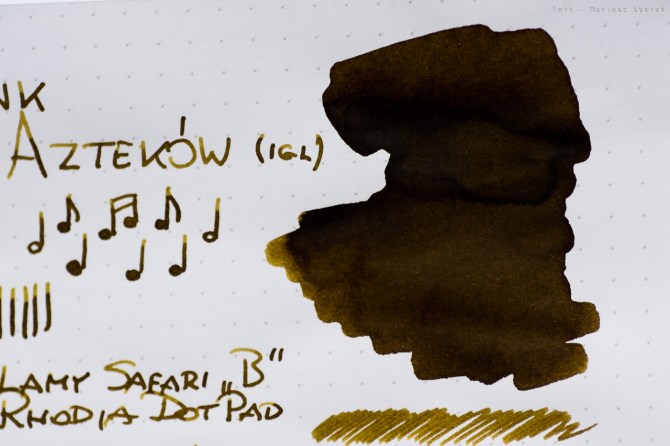 Foto - Mariusz Lysień
NK
AZTEKÓW (IGL)
LAMY SAFARI „B"
RHODIA DOTPAD